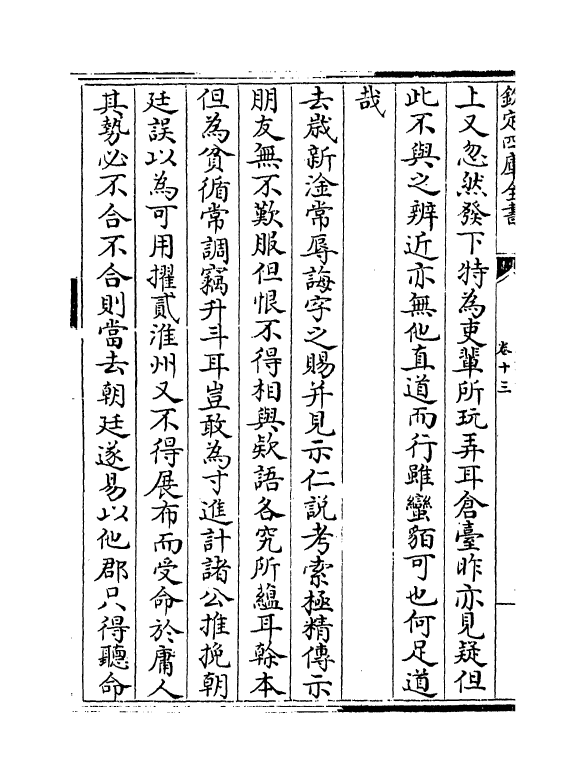 欽定四庫全書
卷十三
上又忽然發下特為吏輩所玩弄耳倉臺昨亦見疑但
此不與之辨近亦無他直道而行雖蠻貊可也何足道
哉
去歲新淦常辱誨字之賜并見示仁説考索極精傳示
朋友無不歎服但恨不得相與欵語各究所藴耳榦本
但為貧循常調竊升斗耳豈敢為寸進計諸公推挽朝
廷誤以為可用擢貳淮州又不得展布而受命於庸人
其勢必不合不合則當去朝廷遂易以他郡只得聽命